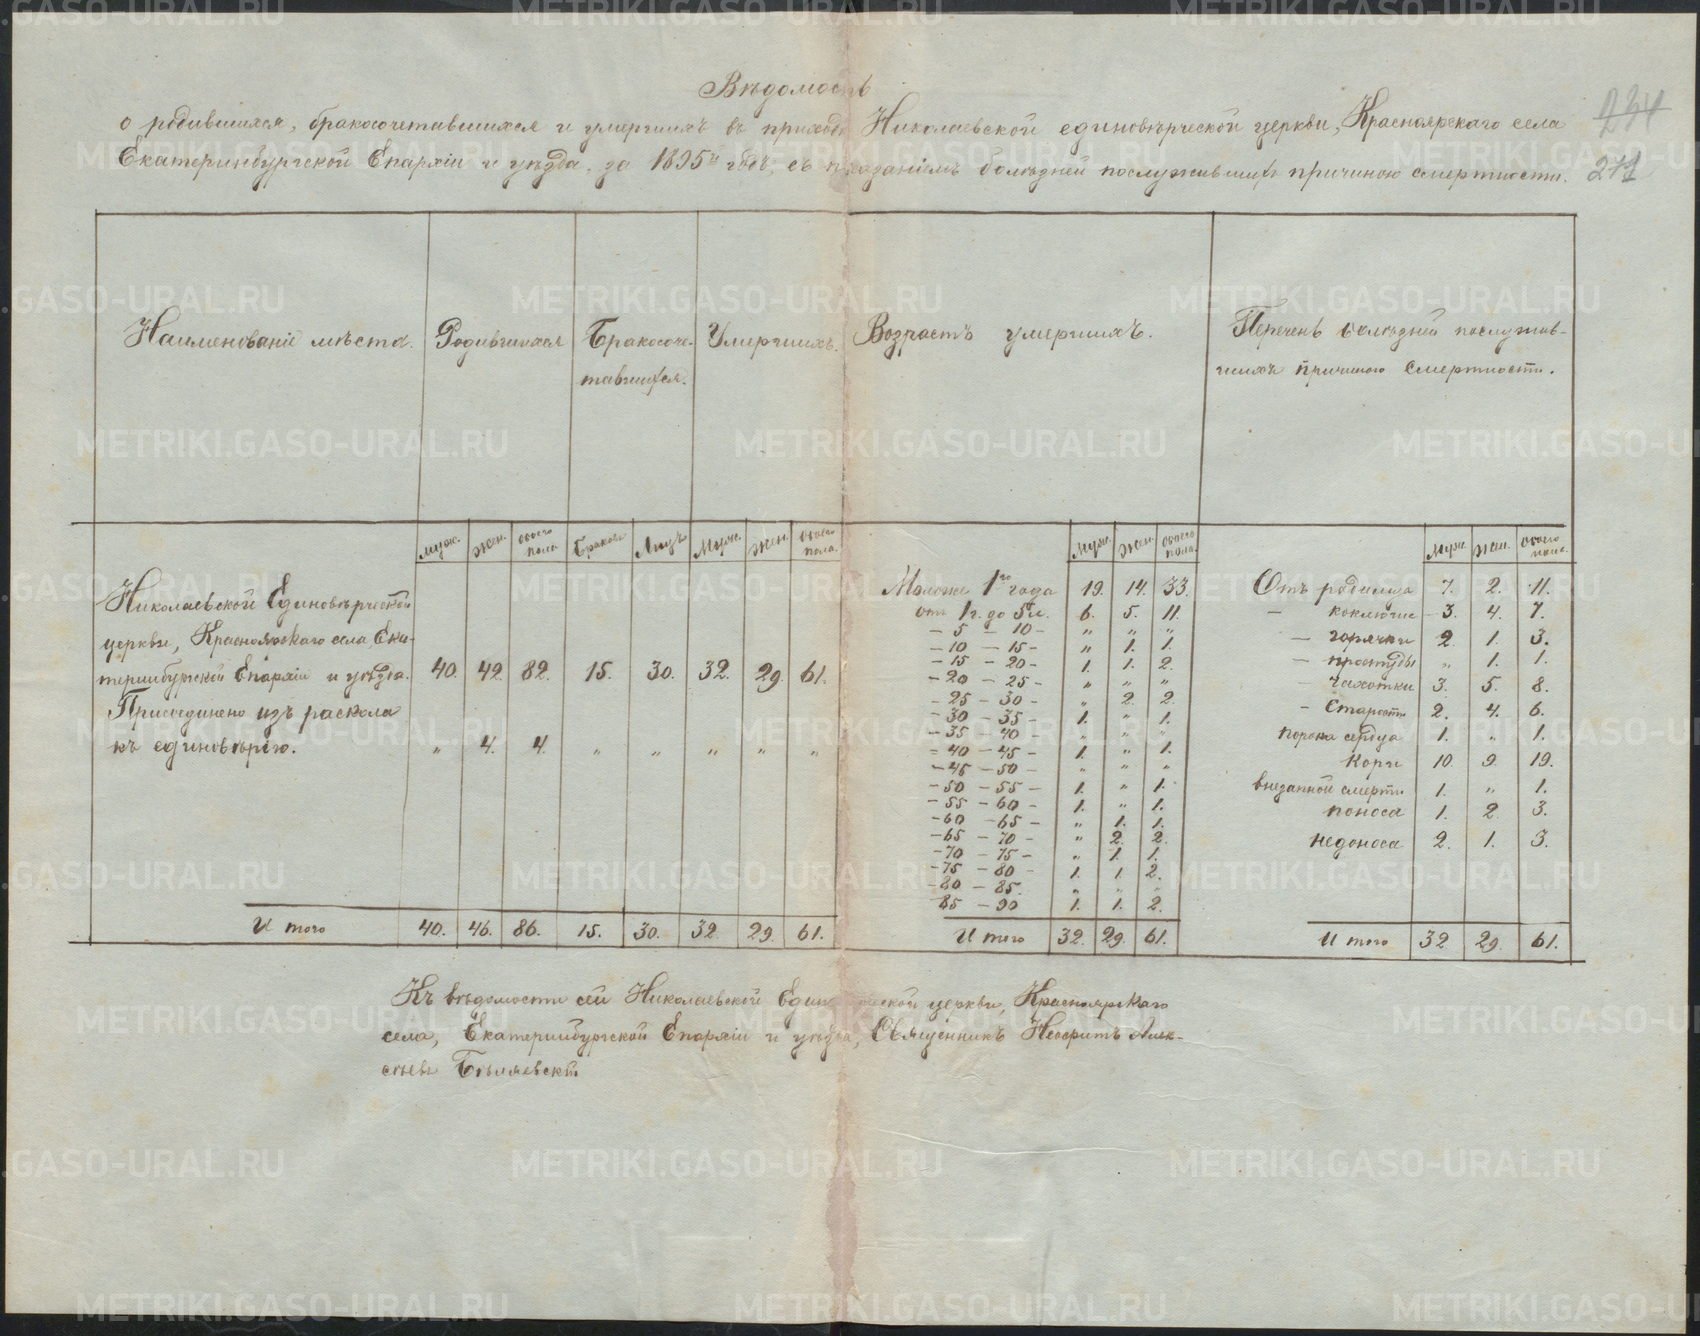 Вѣдомость
о родившихся, бракосочетавшихся и умершихъ въ приходѣ Николаевской единовѣрческой церкви, Красноярскаго села
Екатеринбургской Епархіи и уѣзда, за 1895й годъ, съ показаніемъ болѣзней послужившихъ причиною смертности.
234
271
Наименованіе мѣста. Родившихся Бракосоче- Умершихъ. Возрастъ умершихъ. Перечень болѣзней послужив-
тавшихся. шихъ причиною смертности.
муж. жен. обоего пола Браковъ Лицъ Муж. Жен. Обоего пола. Муж. Жен. Обоего пола. Муж. Жен. Обоего пола.
Николаевской Единовѣрческой
церкви, Красноярскаго села, Ека-
теринбургской Епархіи и уѣзда. 40. 42. 82. 15. 30. 32. 29. 61.
Присоединено изъ раскола
къ единовѣрію. „ 4. 4. „ „ „ „ „
Итого 40. 46. 86. 15. 30. 32. 29. 61.
Моложе 1го года 19. 14. 33.
отъ 1 г. до 5 л. 6. 5. 11.
– 5 – 10 – „ „ „
– 10 – 15 – „ 1. 1.
– 15 – 20 – 1. 1. 2.
– 20 – 25 – „ „ „
– 25 – 30 – „ 2. 2.
– 30 – 35 – 1. „ 1.
– 35 – 40 – „ „ „
– 40 – 45 – 1. „ 1.
– 45 – 50 – „ „ „
– 50 – 55 – 1. „ 1.
– 55 – 60 – 1. „ 1.
– 60 – 65 – „ 1. 1.
– 65 – 70 – „ 2. 2.
– 70 – 75 – „ 1. 1.
– 75 – 80 – 1. 1. 2.
– 80 – 85. „ „ „
85 – 90 1. 1. 2.
Итого 32. 29. 61.
Отъ родимца 7. 2. 11.
– коклюша 3. 4. 7.
– горячки 2. 1. 3.
– простуды „ 1. 1.
чахотки 3. 5. 8.
– Старости 2. 4. 6.
порока сердца 1. „ 1.
Кори 10. 9. 19.
внезапной смерти 1. „ 1.
поноса 1. 2. 3.
недоноса 2. 1. 3.
Итого 32. 29. 61.
Къ вѣдомости сей Николаевской Единовѣрческой церкви, Красноярскаго
села, Екатеринбургской Епархіи и уѣзда, Священникъ Неофитъ Алек-
сѣевъ Бѣляевскій
METRIKI.GASO-URAL.RU